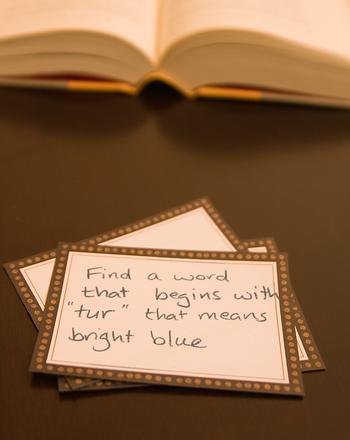 Find a word
that begins with
"tur" that means
bright blue